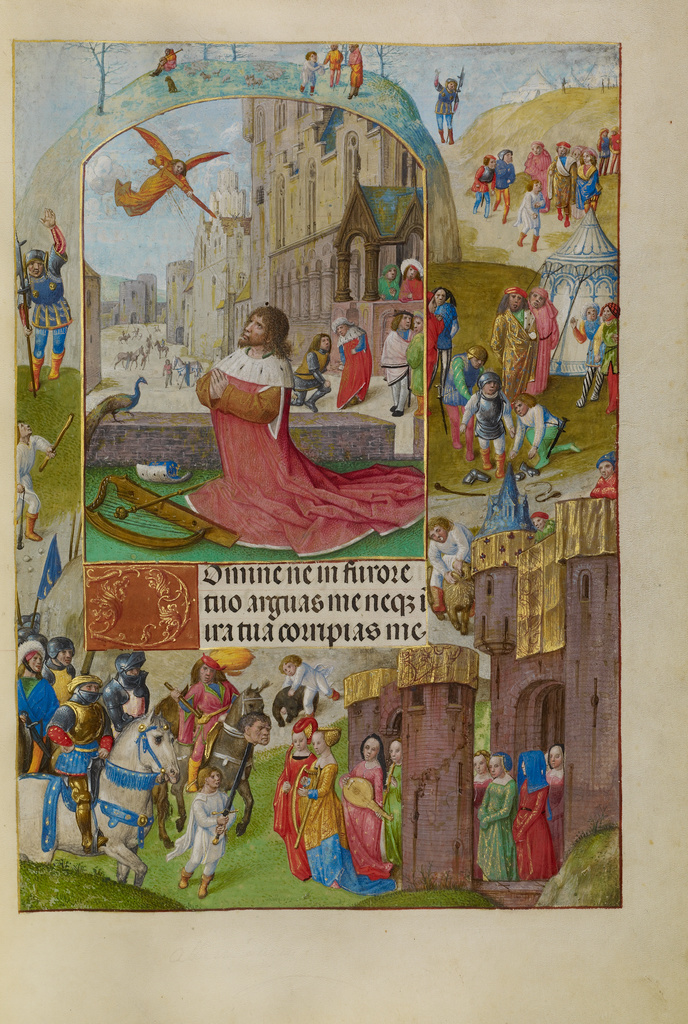 DOmine ne in furore
tuo arguas me neqꝫ ī
ira tuā corripias me·